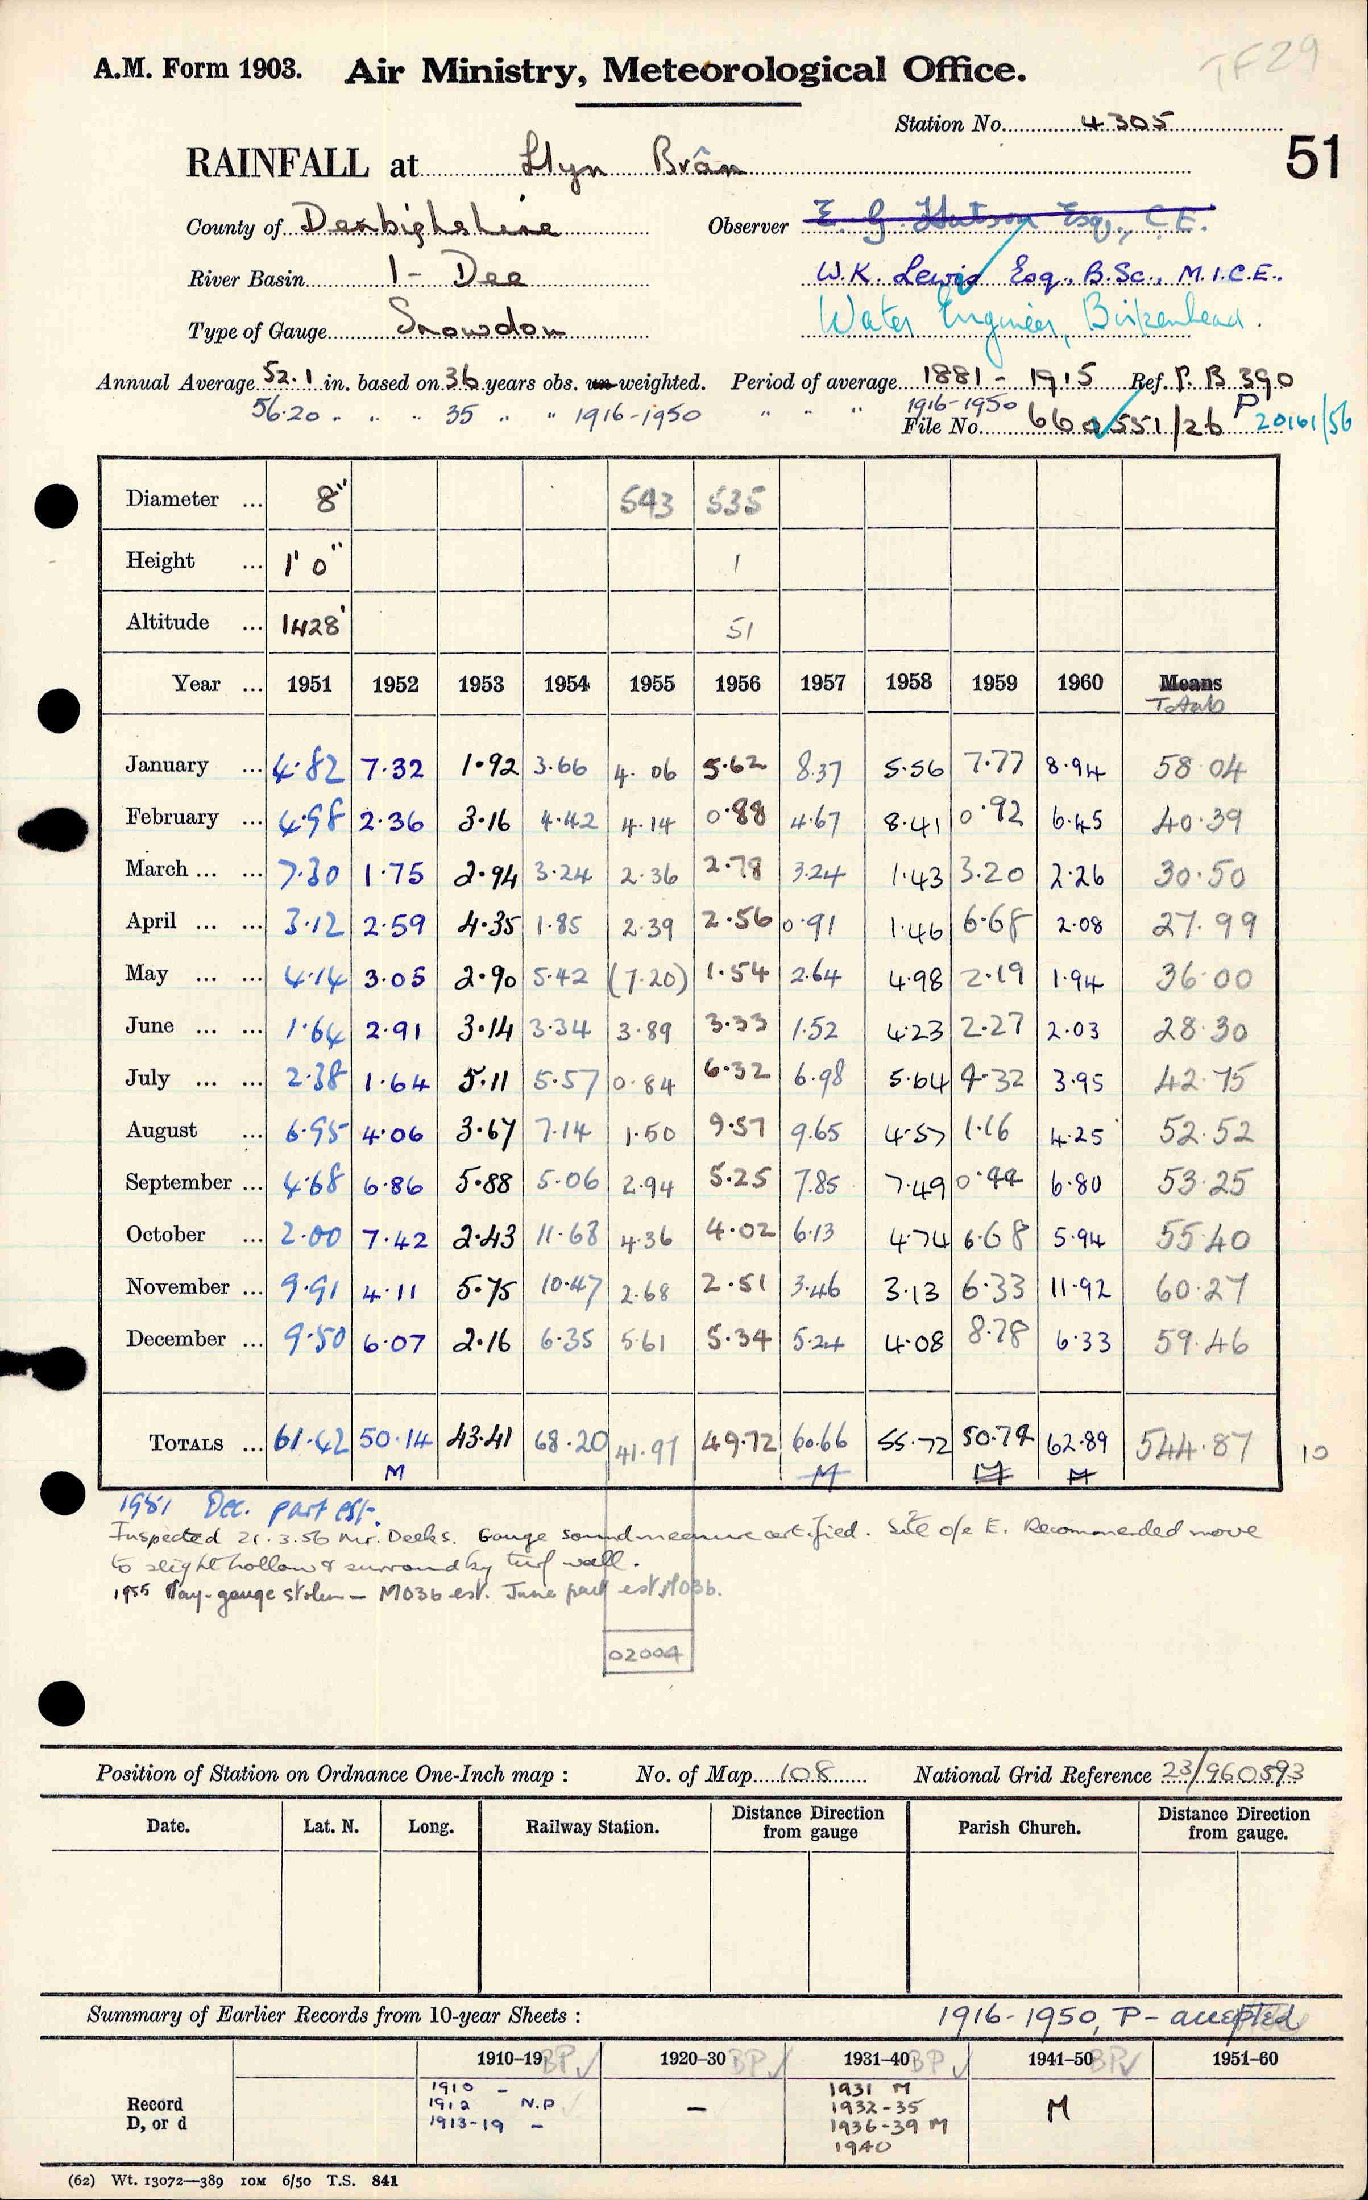 TF29
A.M. Form 1903. Air Ministry, Meteorological Office.
Station No. 4305
51
RAINFALL at Llyn Brân
County of Denbighshire Observer E. G. Hatson Esq., C.E.
River Basin 1 - Dee W.K. Lewis Esq., B.Sc., M.I.C.E.
Type of Gauge Snowdon Water Engineer, Birkenhead.
Annual Average 52.1 in. based on 36 years obs. un-weighted. Period of average 1881 - 1915 Ref. P. B 390
56.20 " " " 35 " " 1916-1950 " " " 1916-1950
File No. 660551/26 P 20161/56
Diameter ... 8" 543 535
Height ... 1' 0" 1
Altitude ... 1428' 51
Year ... 1951 1952 1953 1954 1955 1956 1957 1958 1959 1960 Means
Totals
January ... 4.82 7.32 1.92 3.66 4.06 5.62 8.37 5.56 7.77 8.94 58.04
February ... 4.98 2.36 3.16 4.42 4.14 0.88 4.67 8.41 0.92 6.45 40.39
March ... ... 7.30 1.75 2.94 3.24 2.36 2.78 3.24 1.43 3.20 2.26 30.50
April ... ... 3.12 2.59 4.35 1.85 2.39 2.56 0.91 1.46 6.68 2.08 27.99
May ... ... 4.14 3.05 2.90 5.42 (7.20) 1.54 2.64 4.98 2.19 1.94 36.00
June ... ... 1.64 2.91 3.14 3.34 3.89 3.33 1.52 4.23 2.27 2.03 28.30
July ... ... 2.38 1.64 5.11 5.57 0.84 6.32 6.98 5.64 4.32 3.95 42.75
August ... 6.95 4.06 3.67 7.14 1.50 9.57 9.65 4.57 1.16 4.25 52.52
September ... 4.68 6.86 5.88 5.06 2.94 5.25 7.85 7.49 0.44 6.80 53.25
October ... 2.00 7.42 2.43 11.68 4.36 4.02 6.13 4.74 6.68 5.94 55.40
November ... 9.91 4.11 5.75 10.47 2.68 2.51 3.46 3.13 6.33 11.92 60.27
December ... 9.50 6.07 2.16 6.35 5.61 5.34 5.24 4.08 8.78 6.33 59.46
TOTALS ... 61.42 50.14 43.41 68.20 41.97 49.72 60.66 55.72 50.74 62.89 544.87 10
M M M M
1951 Dec. part est.
Inspected 21.3.56 Mr. Deeks. Gauge sound measure certified. Site o/e E. Recommended move
to slight hollow & surround by turf wall.
1955 May - gauge stolen - M036 est. June part est M036.
02004
Position of Station on Ordnance One-Inch map : No. of Map 108 National Grid Reference 23/960593
Date. Lat. N. Long. Railway Station. Distance Direction from gauge Parish Church. Distance Direction from gauge.
Summary of Earlier Records from 10-year Sheets : 1916-1950, P - accepted
1910–19 BP✓ 1920–30 BP✓ 1931–40 BP✓ 1941–50 BP✓ 1951–60
Record
D, or d
1910 -
1912 N.P
1913-19 -
–
1931 M
1932-35
1936-39 M
1940
M
(62) Wt. 13072—389 10M 6/50 T.S. 841